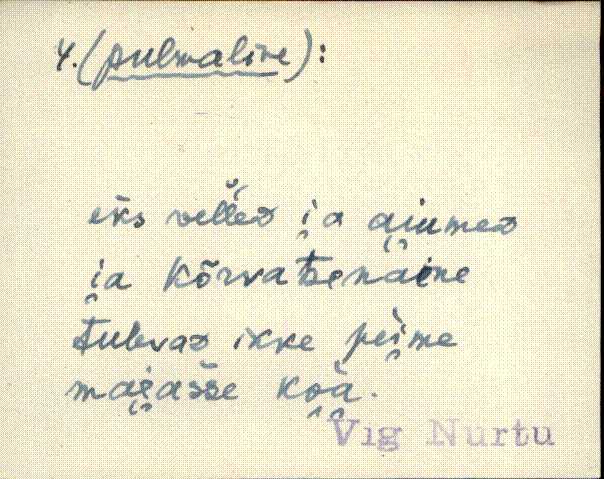 4. (pulmaline):
eks velleᴅ i̯a ai̯umeᴅ
i̯a kõrvaʙenaine
tulevaᴅ ikke pei̯me
mai̯ašse ko̭a̭.
Vig Nurtu